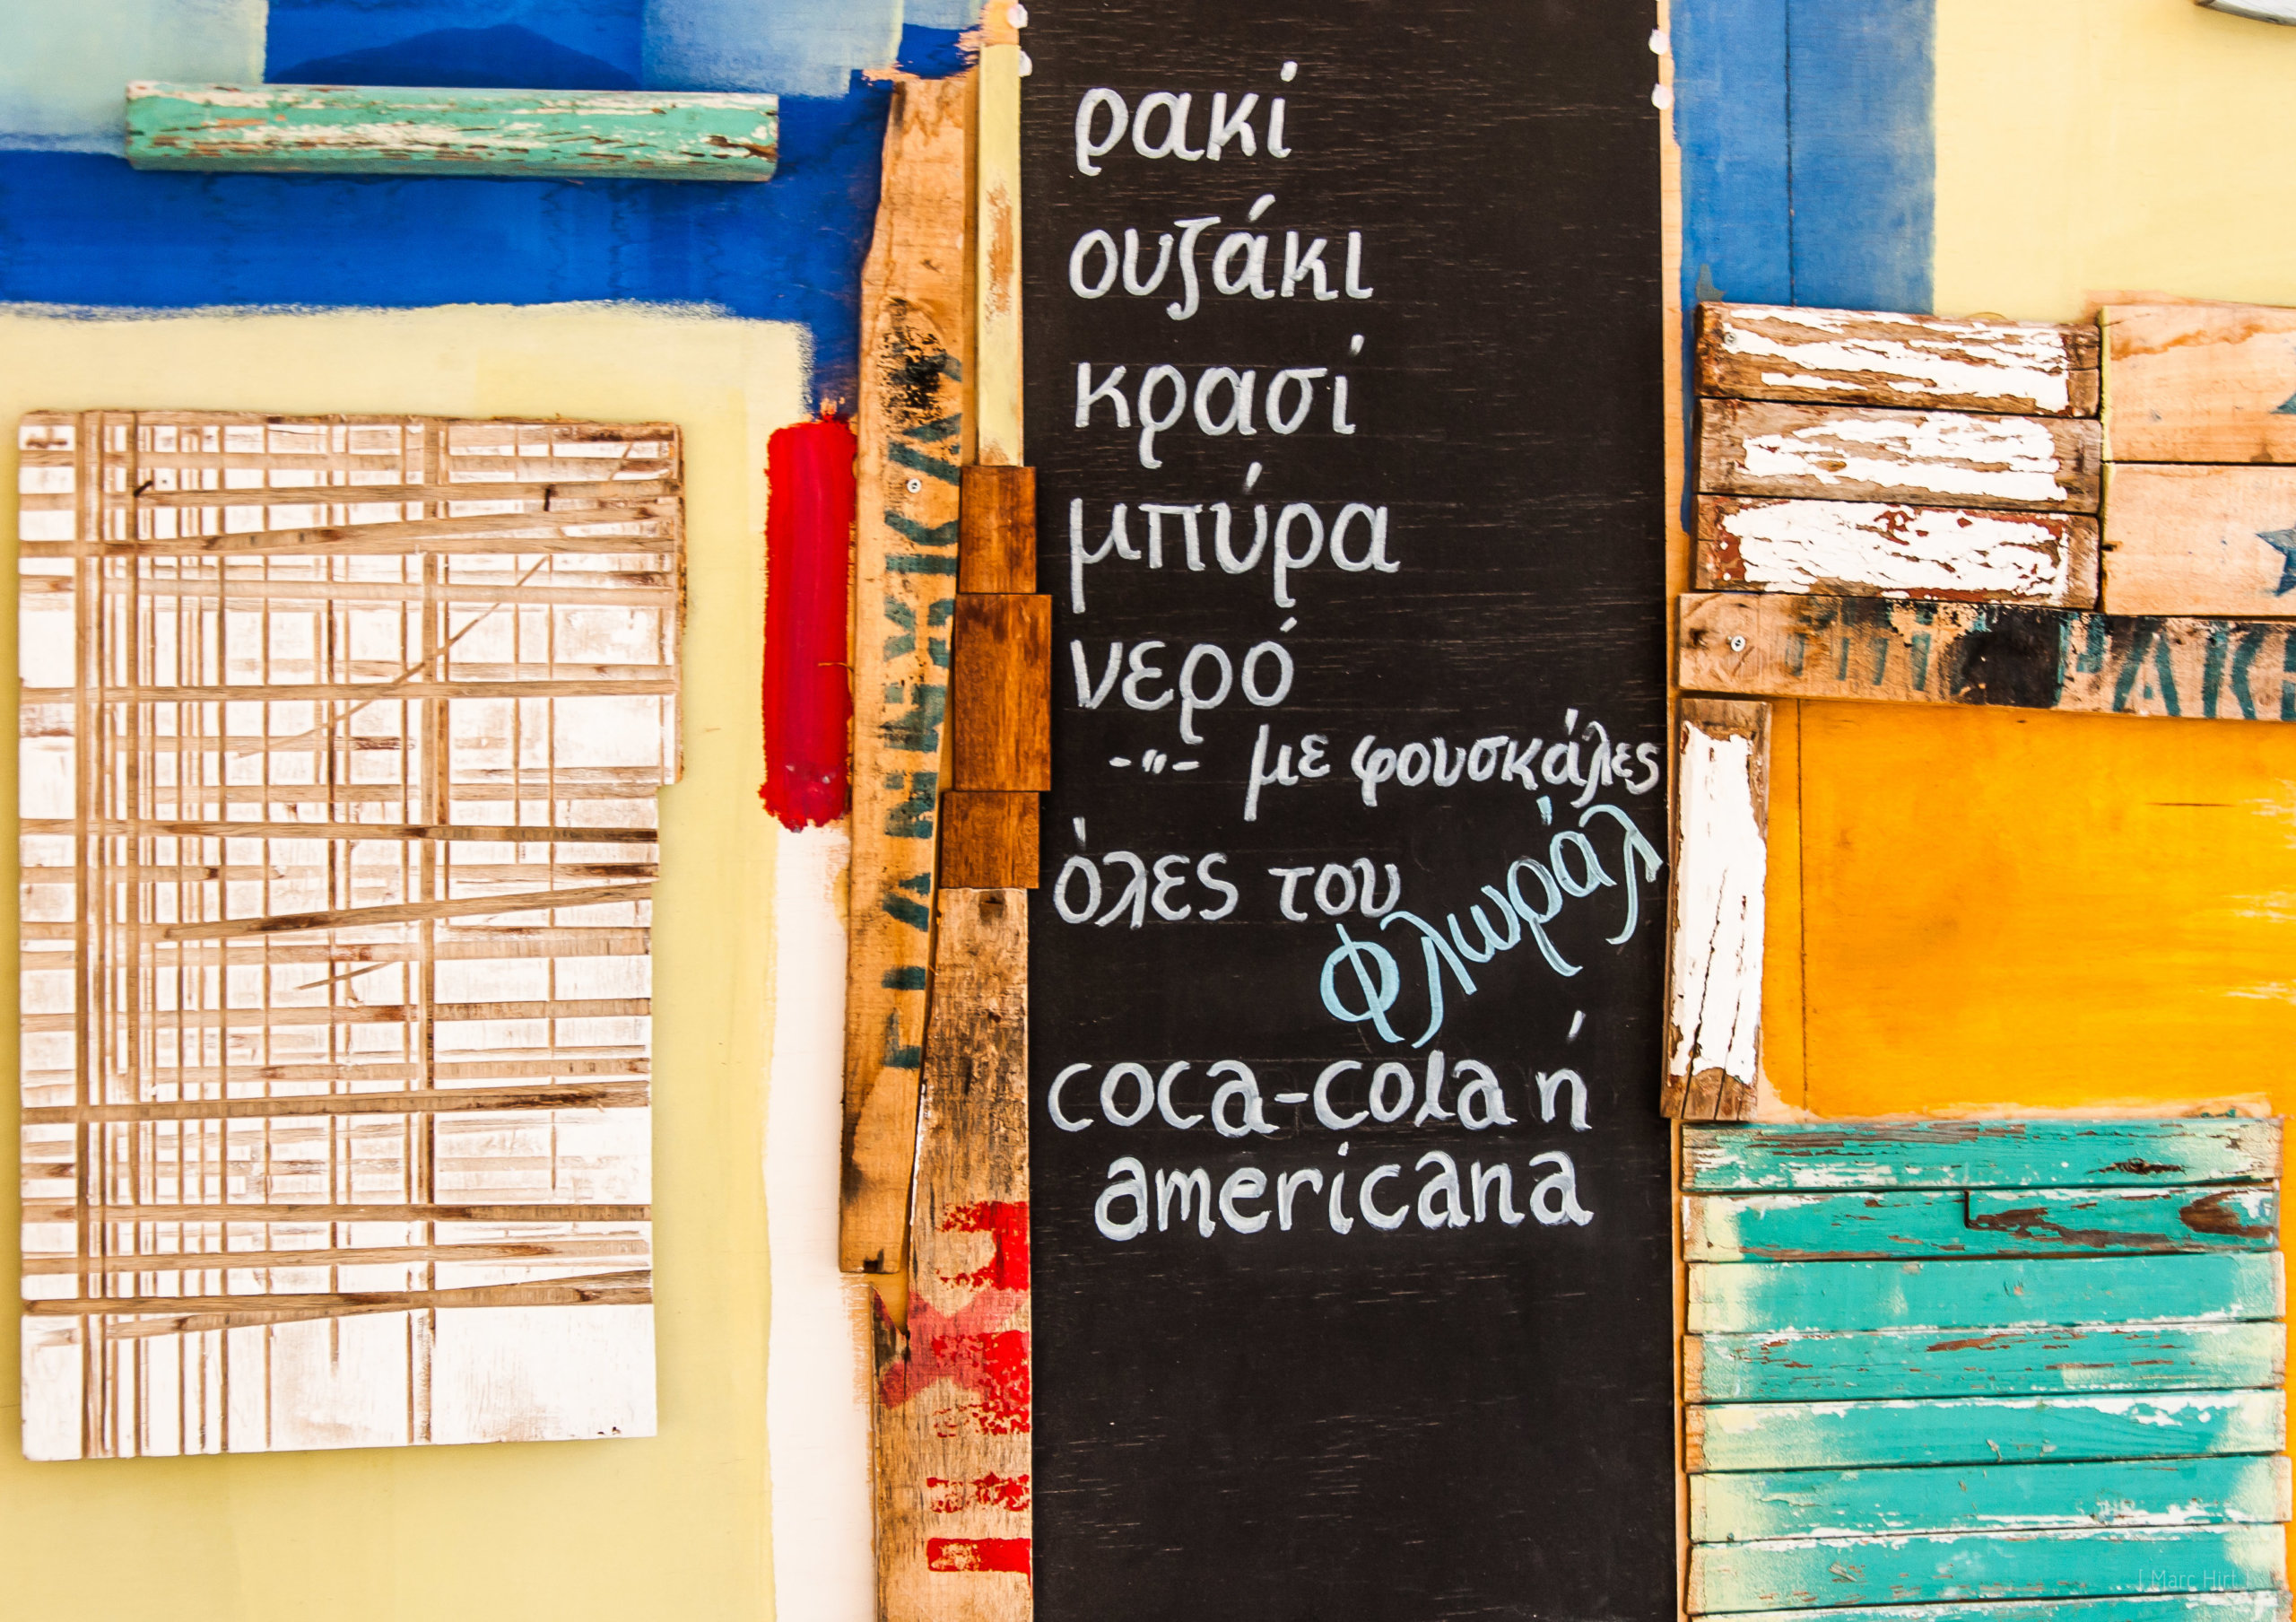 ρακί
ουζάκι
κρασί
μπύρα
νερό
-"- με φουσκάλες
όλες του
Φλωράλ
coca-cola ή
americana
| Marc Hirt |